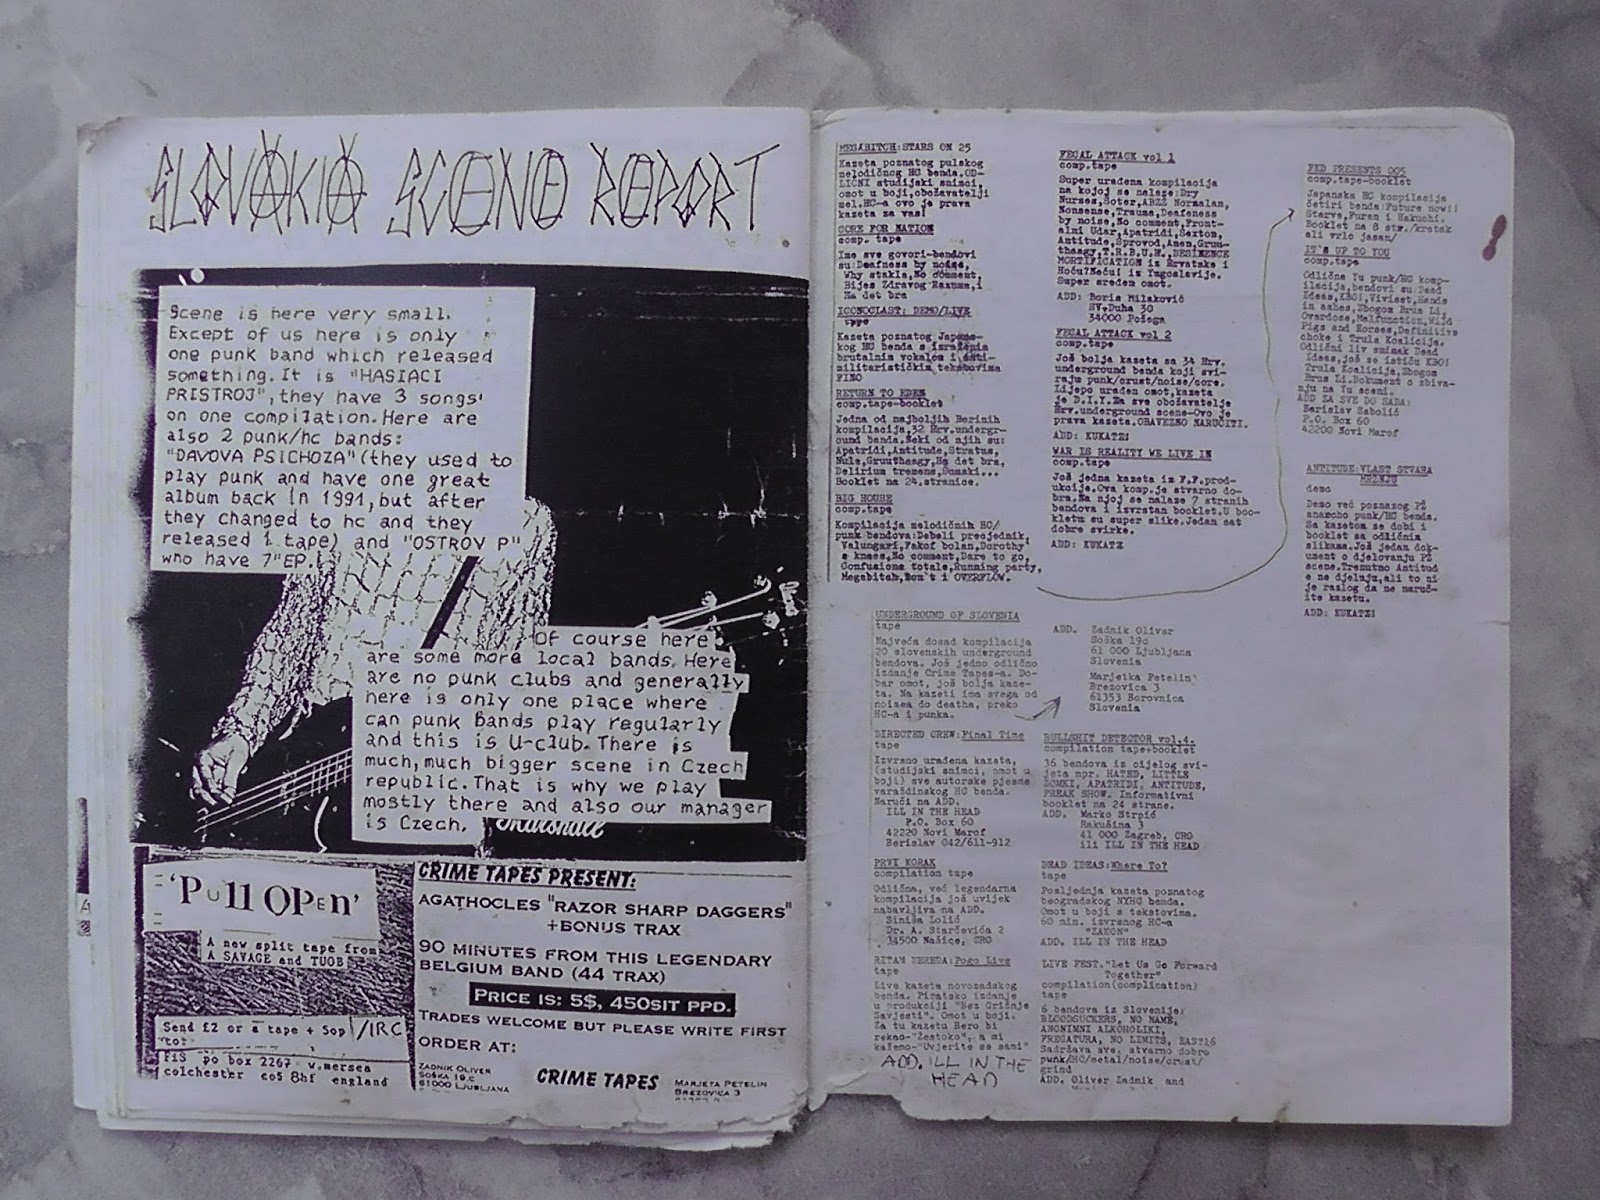 SLOVAKIA SCENE REPORT
Scene is here very small.
Except of us here is only
one punk band which released
something. It is "HASIACI
PRISTROJ", they have 3 songs
on one compilation. Here are
also 2 punk/hc bands:
"DAVOVA PSICHOZA" (they used to
play punk and have one great
album back in 1991, but after
they changed to hc and they
released 1 tape) and "OSTROV P"
who have 7"EP.
Of course here
are some more local bands. Here
are no punk clubs and generally
here is only one place where
can punk bands play regularly
and this is U-club. There is
much, much bigger scene in Czech
republic. That is why we play
mostly there and also our manager
is Czech.
Marshall
'Pull OPen'
A new split tape from
A SAVAGE and TUOB
Send £2 or a tape + 50p/IRC
to:
FIS po box 2267 w.mersea
colchester co5 8hf england
CRIME TAPES PRESENT:
AGATHOCLES "RAZOR SHARP DAGGERS"
+BONUS TRAX
90 MINUTES FROM THIS LEGENDARY
BELGIUM BAND (44 TRAX)
PRICE IS: 5$, 450SIT PPD.
TRADES WELCOME BUT PLEASE WRITE FIRST
ORDER AT:
ZADNIK OLIVER
SOŠKA 19.C
61000 LJUBLJANA
CRIME TAPES
MARJETA PETELIN
BREZOVICA 3
MEGABITCH:STARS ON 25
Kazeta poznatog pulskog
melodičnog HC benda.OD-
LIČNI studijski snimci,
omot u boji,obožavatelji
mel.HC-a ovo je prava
kazeta za vas!
CORE FOR NATION
comp. tape
Ime sve govori-bendovi
su:Deafness by noise,
Why stakla,No comment,
Bijes Zdravog Razuma,i
Ha det bra
ICONOCLAST: DEMO/LIVE
tape
Kazeta poznatog Japans-
kog HC benda s izraženim
brutalnim vokalom i anti-
militarističkim tekstovima
FINO
RETURN TO EDEN
comp.tape-booklet
Jedna od najboljih Berinih
kompilacija,32 Hrv.undergr-
ound benda.Neki od njih su:
Apatridi,Antitude,Stratus,
Nula,Gruuthaagy,Ha det bra,
Delirium tremens,Šumski...
Booklet na 24.stranice.
BIG HOUSE
comp.tape
Kompilacija melodičnih HC/
punk bendova:Debeli presjednik,
Valungari,Fakof bolan,Dorothy
s knees,No comment,Dare to go,
Confusione totale,Running party,
Megabitch,Don't i OVERFLOW.
FECAL ATTACK vol 1
comp.tape
Super urađena kompilacija
na kojoj se nalaze:Dry
Nurses,Šoter,ABZŽ Normalan,
Nonsense,Trauma,Deafeness
by noise,No comment,Front-
alni Udar,Apatridi,Sexton,
Antitude,Sprovod,Amen,Gruu-
thaagy,T.R.B.U.H.,DESINENCE
MORTIFICATION iz Hrvatske i
Hoću?Neću! iz Yugoslavije.
Super sređen omot.
ADD: Boris Milaković
SV.Duha 30
34000 Požega
FECAL ATTACK vol 2
Još bolja kazeta sa 34 Hrv.
underground benda koji svi-
raju punk/crust/noise/core.
Lijepo urađen omot,kazeta
je D.I.Y.Za sve obožavatelje
Hrv.underground scene-Ovo je
prava kazeta.OBAVEZNO NARUČITI.
ADD: KUKATZ!
WAR IS REALITY WE LIVE IN
comp.tape
Još jedna kazeta iz F.F.prod-
ukcije.Ova komp.je stvarno do-
bra.Na njoj se nalaze 7 stranih
bendova i izvrstan booklet.U boo-
kletu su super slike.Jedan sat
dobre svirke.
ADD: KUKATZ
FED PRESENTS 005
comp.tape-booklet
Japanska HC kompilacija
četiri benda:Future now!!
Starve,Furan i Hakuchi.
Booklet na 8 str./kratak
ali vrlo jasan/
IT'S UP TO YOU
comp.tape
Odlična Yu punk/HC komp-
ilacija,bendovi su:Dead
Ideas,KBO!,Vivisect,Hands
in ashes,Zbogom Brus Li,
Overdose,Malfunction,Wild
Pigs and Horses,Definitive
choke i Trula Koalicija.
Odlični liv snimak Dead
Ideas,još se ističu KBO!
Trula Koalicija,Zbogom
Brus Li.Dokument o zbiva-
nju na Yu sceni.
ADD ZA SVE DO SADA:
Berislav Sabolić
P.O. Box 60
42200 Novi Marof
ANTITUDE:VLAST STVARA
MRŽNJU
demo
Demo već poznazog PŽ
anarcho punk/HC benda.
Sa kazetom se dobi i
booklet sa odličnim
slikama.Još jedan dok-
ument o djelovanju PŽ
scene.Trenutno Antitud
e ne djeluju,ali to ni
je razlog da ne naruč-
ite kazetu.
ADD: KUKATZ!
UNDERGROUND OF SLOVENIA
tape
Najveća dosad kompilacija
20 slovenskih underground
bendova. Još jedno odlično
izdanje Crime Tapes-a. Do-
bar omot, još bolja kaze-
ta. Na kazeti ima svega od
noisea do deatha, preko
HC-a i punka.
ADD. Zadnik Oliver
Soška 19c
61 000 Ljubljana
Slovenia
Marjetka Petelin
Brezovica 3
61353 Borovnica
Slovenia
DIRECTED CREW:Final Time
tape
Izvrsno urađena kazeta,
(studijski snimci, omot u
boji) sve autorske pjesme
varaždinskog HC benda.
Naruči na ADD.
ILL IN THE HEAD
P.O. Box 60
42220 Novi Marof
Berislav 042/611-912
PRVI KORAK
compilation tape
Odlična, već legendarna
kompilacija još uvijek
nabavljiva na ADD.
Siniša Lolić
Dr. A. Starčevića 2
34500 Našice, CRO
RITAM NEREDA:Pogo Live
tape
Live kazeta novosadskog
benda. Piratsko izdanje
u produkciji "Bez Grižnje
Savjesti". Omot u boji.
Za tu kazetu Bero bi
rekao-"Žestoko", a mi
kažemo-"Uvjerite se sami"
ADD. ILL IN THE
HEAD
BULLSHIT DETECTOR vol.4.
compilation tape+booklet
36 bendova iz cijelog svi-
jeta npr. HATED, LITTLE
ZOMKI, APATRIDI, ANTITUDE,
FREAK SHOW. Informativni
booklet na 24 strane.
ADD. Marko Strpić
Rakušina 3
41 000 Zagreb, CRO
ili ILL IN THE HEAD
DEAD IDEAS:Where To?
tape
Posljednja kazeta poznatog
beogradskog NYHC benda.
Omot u boji s tekstovima.
60 min. izvrsnog HC-a
"ZAKON"
ADD. ILL IN THE HEAD
LIVE FEST."Let Us Go Forward
Together"
compilation(complication)
tape
6 bendova iz Slovenije:
BLOODSUCKERS, NO NAME,
ANONIMNI ALKOHOLIKI,
FREGATURA, NO LIMITS, EAST16
Sadržava sve, stvarno dobro
punk/HC/metal/noise/crust/
grind
ADD. Oliver Zadnik and